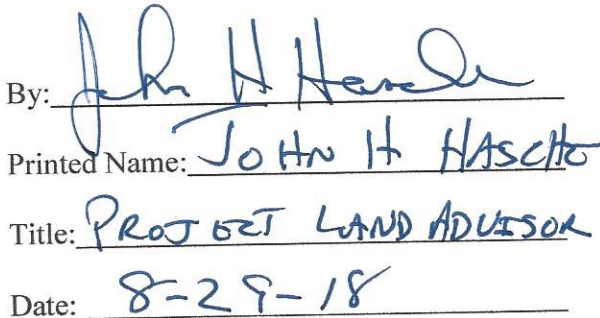 By: John H Hasche
Printed Name: JOHN H HASCHE
Title: PROJECT LAND ADVISOR
Date: 8-29-18